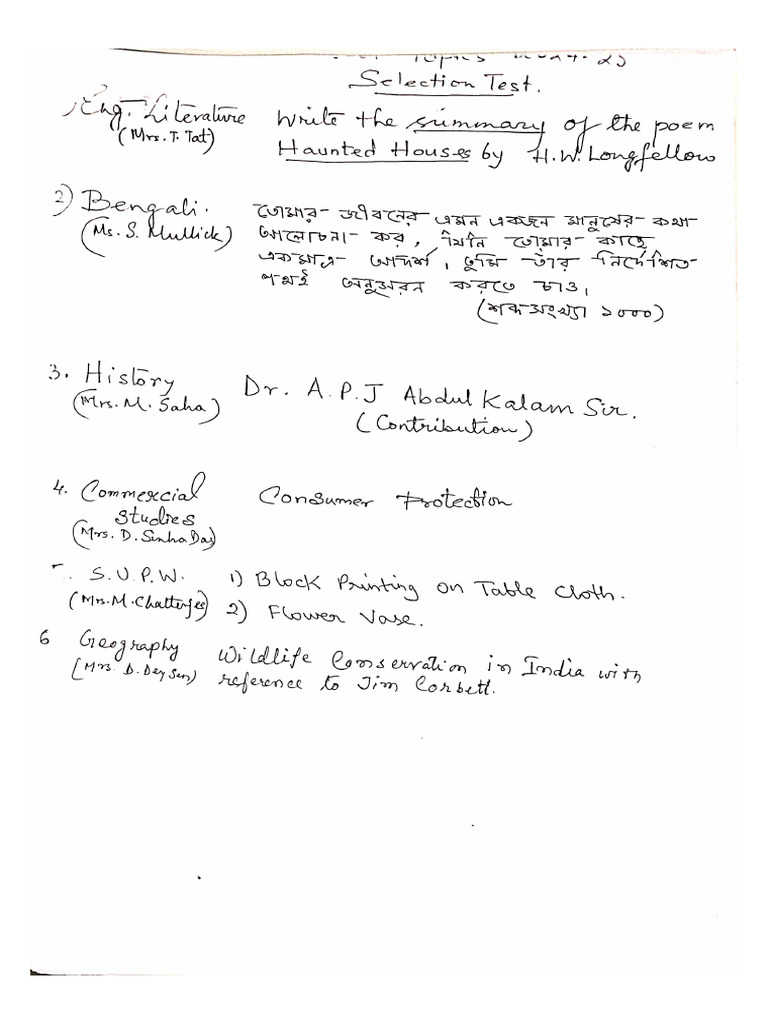 Topics 2024-25
Selection Test.
1) Eng. Literature Write the summary of the poem
(Mrs. T. Tat) Haunted Houses by H.W. Longfellow
2) Bengali. তোমার জীবনের এমন একজন মানুষের কথা
(Ms. S. Mullick) আলোচনা কর, যিনি তোমার কাছে
একমাত্র আদর্শ, তুমি তাঁর নির্দেশিত
পথই অনুসরন করতে চাও।
(শব্দসংখ্যা ১০০০)
3. History Dr. A.P.J Abdul Kalam Sir.
(Mrs. M. Saha) (Contribution)
4. Commercial Consumer Protection
Studies
(Mrs. D. Sinha Das)
S.U.P.W. 1) Block Printing on Table Cloth.
(Mrs. M. Chatterjee) 2) Flower Vase.
6 Geography Wildlife Conservation in India with
(Mrs. D. Dey Sen) reference to Jim Corbett.